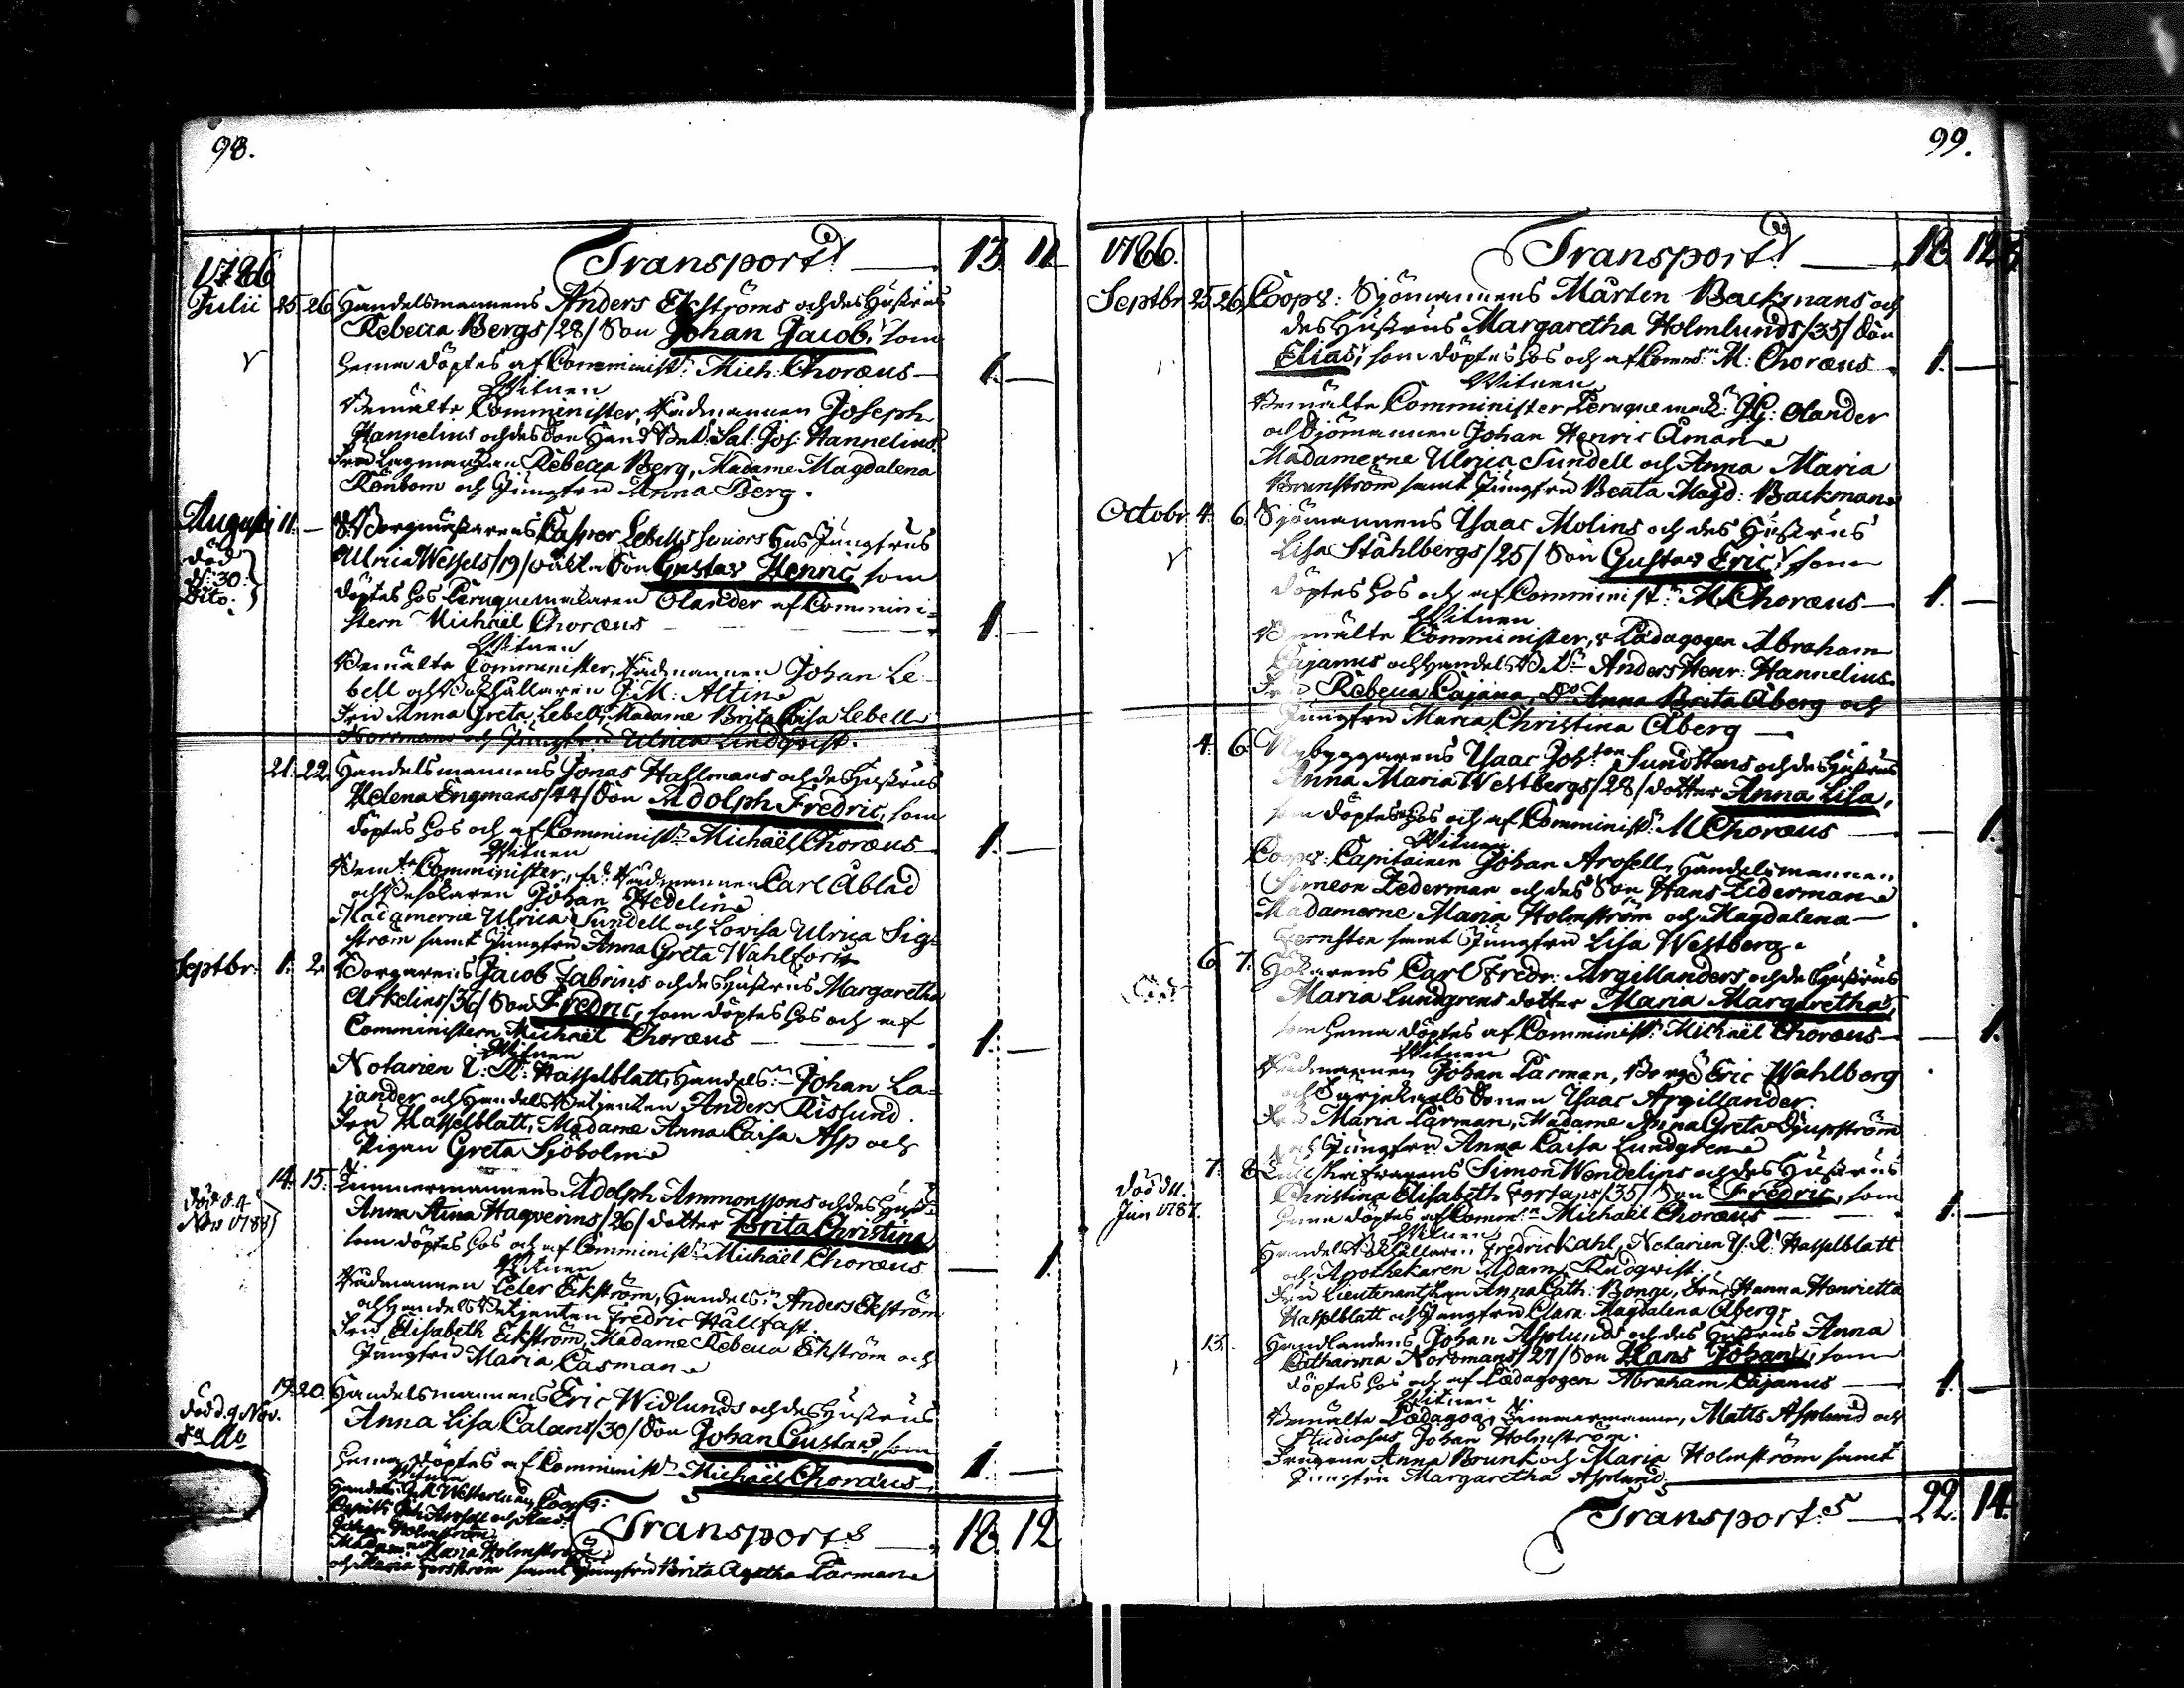 98.
Transport 13. 11
1786
Julii 25. 26. Handelsmannens Anders Ekströms och des Hustrus
Rebecca Bergs /28/ Son Johan Jacob, som
hema döptes af Comminist: Mich: Choræus 1. —
Witnen
Bemälte Comminister, Rådmannen Joseph
Hannelius och des Son Hand. Bet: Sal: Jos: Hannelius
Fru Lagmanskan Rebecca Berg, Madame Magdalena
Rönbom och Jungfru Anna Berg.
Augusti 11. — Borgmästarens Casper Lebells seniors Hus Jungfrus
Ulrica Wessels /19/ oäkta Son Gustav Henric, som
död
d: 30:
Dito.
döptes hos Peruquemakaren Olander af Commini-
stern Michaël Choræus 1. —
Witnen
Bemälte Comminister, Rådmannen Johan Le-
bell och Bokhållaren J: M: Altin
Fru Anna Greta Lebell, Madame Brita Caisa Lebell
Norrmans och Jungfru Ulrica Lindqvist.
21. 22. Handelsmannens Jonas Hahlmans och des Hustrus
Helena Engmans /44/ Son Adolph Fredric, som
döptes hos och af Comminist:n Michaël Choræus 1. —
Witnen
Bem:te Comminister, Rådmannen Carl Åblad
och Johan Hedelin
Madamerne Ulrica Sundell och Lovisa Ulrica Sig-
ström samt Jungfru Anna Greta Wahlfors
Septbr: 1. 2. Borgarens Jacob Fabrins och des Hustrus Margaretha
Arkelins /36/ Son Fredric, som döptes hos och af
Comministern Michaël Choræus 1. —
Witnen
Notarien Hasselblatt, Handelsm:n Johan La-
jander och Handels Betjenten Anders Kislund.
Fru Hasselblatt, Madame Anna Caisa Asp och
Pigan Greta Sjöholm
14. 15. Timmermannens Adolph Ammonssons och des Hust:s
död d. 4
Nov 1788
Anna Stina Hagverins /26/ dotter Brita Christina
som döptes hos och af Comminist:n Michaël Choræus — 1.
Witnen
Rådmannen Peter Ekström, Handelsm:n Anders Ekström
och Handels Betjenten Fredric Hållfast.
Fru Elisabeth Ekström, Madame Rebecca Ekström och
Jungfru Maria Casman
19. 20. Handelsmannens Eric Widlunds och des Hustrus
död d. 9 Nov.
Anna Lisa Calans /30/ Son Johan Gustav, som
hema döptes af Comminist:n Michaël Choræus 1. —
Witnen
Johan Holmström
Maria Holmström
samt Jungfru Brita Agatha Carman
Transport 18. 12
99.
Transport 18. 12
1786.
Septbr 25. 26. Coops: Sjömannens Mårten Backmans och
des Hustrus Margaretha Holmlunds /35/ Son
Elias, som döptes hos och af Comm:n M: Choræus 1. —
Witnen
Bemälte Comminister, Peruquemak: Olander
och Sjömannen Johan Henric Åman
Madamerne Ulrica Sundell och Anna Maria
Brunström samt Jungfru Beata Magd: Backman
Octobr 4. 6. Sjömannens Isaac Molins och des Hustrus
Lisa Ståhlbergs /25/ Son Gustav Eric, som
döptes hos och af Comminist:n M. Choræus 1. —
Witnen
Bemälte Comminister, Pædagogen Abraham
Cajanus och Handels Anders Henr: Hannelius
Fru Rebecca Cajana, D:o Anna Brita Åberg och
Jungfru Maria Christina Åberg
4. 6. Nybyggarens Isaac Sundstens och des Hustrus
Anna Maria Westbergs /28/ dotter Anna Lisa,
som döptes hos och af Comminist:n M Choræus — 1.
Witnen
Coops: Capitainen Johan Arosell, Handelsmannen
Simeon Zederman och des Son Hans Zederman
Madamerne Maria Holmström och Magdalena
Fernsten samt Jungfru Lisa Westberg.
6. 7. Carl Fredr: Argillanders och des Hustrus
Maria Lundgrens dotter Maria Margaretha,
som hema döptes af Comminist:n Michaël Choræus — 1.
Witnen
Rådmannen Johan Carman, Borg: Eric Wahlberg
och Isaac Argillander.
Fru Maria Carman, Madame Anna Greta Djupström
och Jungfru Anna Caisa Lundgren
7. 8. Simon Wendelins och des Hustrus
död d 11.
Jun 1787.
Christina Elisabeth Forsans /35/ Son Fredric, som
hema döptes af Comm:n Michaël Choræus 1. —
Witnen
Handels Bokhållaren Fredric Kahl, Notarien Hasselblatt
och Apothekaren Adam Rudqvist.
Fru Lieutenantskan Anna Cath: Bonge, Hanna Henrietta
Hasselblatt och Jungfru Clara Magdalena Åberg.
13. Handlandens Johan Asplunds och des Hustrus Anna
Catharina Norrmans /27/ Son Hans Johan, som
döptes hos och af Pædagogen Abraham Cajanus 1. —
Witnen
Bemälte Pædagog, Timmermannen Matts Asplund och
Studiosus Johan Holmström.
Fruarne Anna Brunk och Maria Holmström samt
Jungfru Margaretha Asplund
Transport 22. 14.